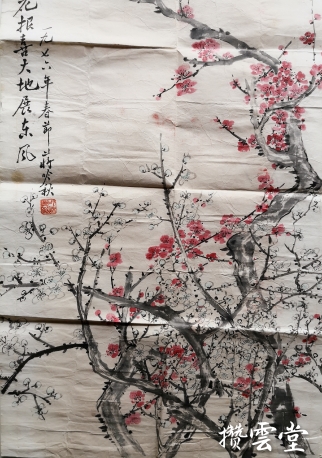 花报喜大地展东风
一九七六年春节
攒雲堂